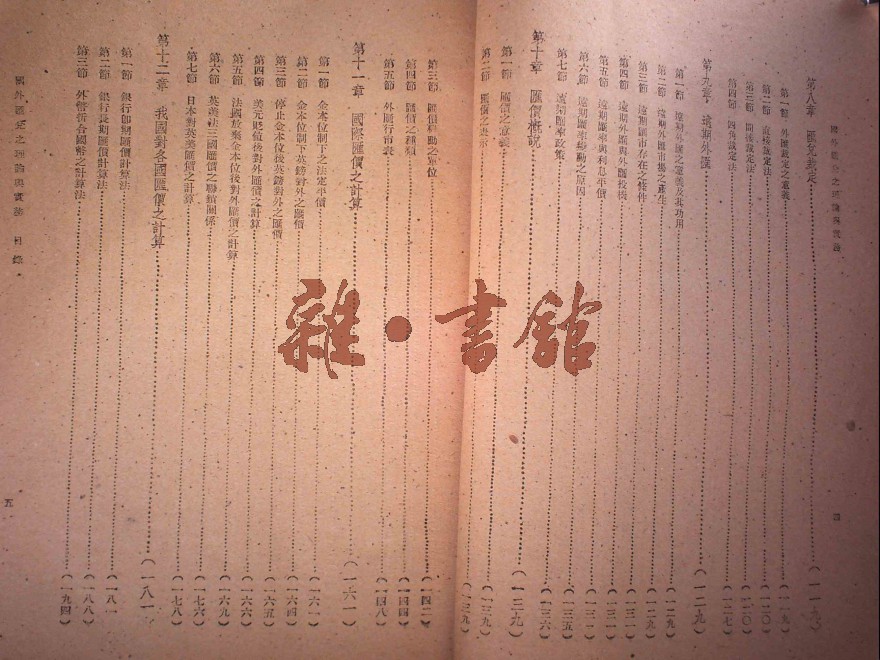 國外匯兌之理論與實務 四
第八章 匯兌裁定……(一一九)
第一節 外匯裁定之意義……(一一九)
第二節 直接裁定法……(一二〇)
第三節 間接裁定法……(一二〇)
第四節 四角裁定法……(一二七)
第九章 遠期外匯……(一二九)
第一節 遠期外匯之意義及其功用……(一二九)
第二節 遠期外匯市場之產生……(一二九)
第三節 遠期匯市存在之條件……(一三一)
第四節 遠期外匯與外匯投機……(一三一)
第五節 遠期匯率與利息平價
第六節 遠期匯率變動之原因
第七節 遠期匯率政策……(一三六)
第十章 匯價概說……(一三九)
第一節 匯價之意義……(一三九)
第二節 匯價之表示……(一三九)
第三節 匯價變動之單位……(一四二)
第四節 匯價之種類……(一四四)
第五節 外匯行市表……(一四八)
第十一章 國際匯價之計算……(一六一)
第一節 金本位制下之法定平價……(一六一)
第二節 金本位制下英鎊對外之匯價……(一六四)
第三節 停止金本位後英鎊對外之匯價……(一六五)
第四節 美元貶值後對外匯價之計算
第五節 法國放棄金本位後對外匯價之計算……(一六九)
第六節 英美法三國匯價之聯鎖關係……(一七六)
第七節 日本對英美匯價之計算……(一七八)
第十二章 我國對各國匯價之計算……(一八一)
第一節 銀行即期匯價計算法……(一八一)
第二節 銀行長期匯價計算法……(一八八)
第三節 外幣折合國幣之計算法……(一九四)
國外匯兌之理論與實務 目錄 五
雜·書館